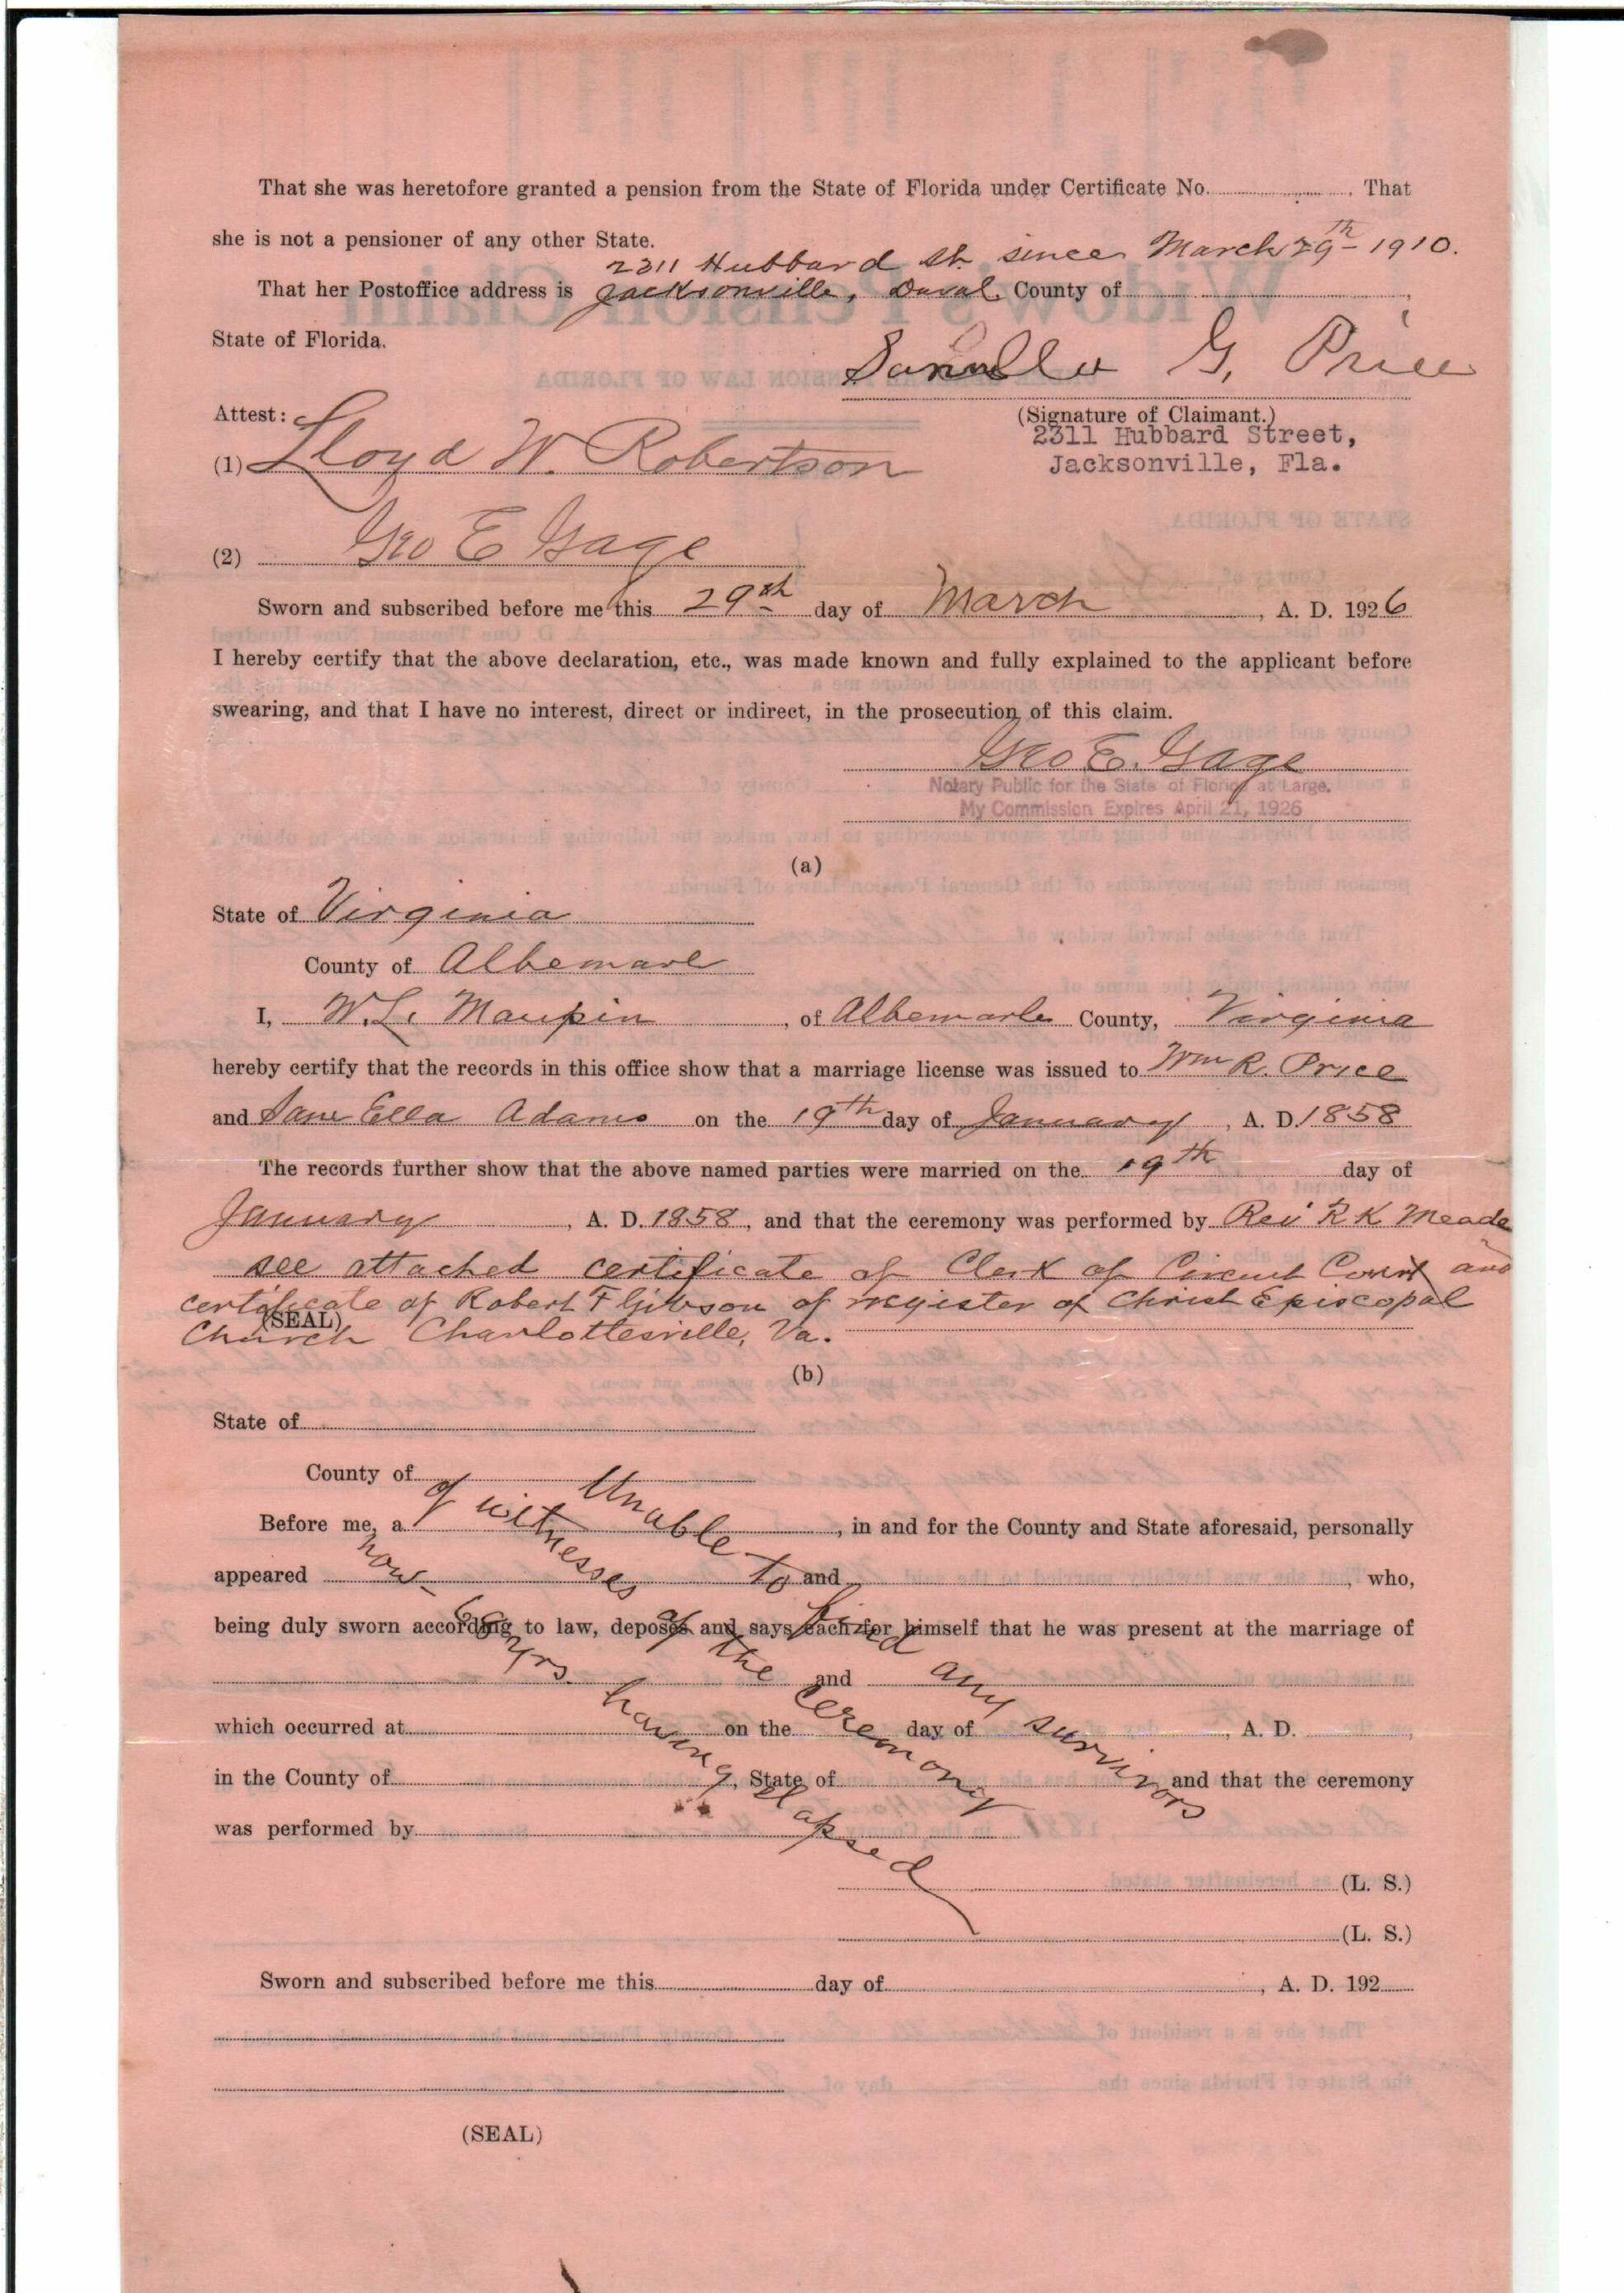 That she was heretofore granted a pension from the State of Florida under Certificate No. . That
she is not a pensioner of any other State.
2311 Hubbard St. since March 29th - 1910.
That her Postoffice address is Jacksonville, Duval County of ,
State of Florida.
G. Price
Attest:
(Signature of Claimant.)
2311 Hubbard Street,
(1) Lloyd W. Robertson
Jacksonville, Fla.
(2) Geo E Gage
Sworn and subscribed before me this 29th day of March , A. D. 1926
I hereby certify that the above declaration, etc., was made known and fully explained to the applicant before
swearing, and that I have no interest, direct or indirect, in the prosecution of this claim.
Geo E. Gage
Notary Public for the State of Florida at Large.
My Commission Expires April 21, 1926
(a)
State of Virginia
County of Albemarle
I, W. L. Maupin , of Albemarle County, Virginia
hereby certify that the records in this office show that a marriage license was issued to Wm R. Price
and Ella Adams on the 19th day of January , A. D. 1858
The records further show that the above named parties were married on the 19th day of
January , A. D. 1858 , and that the ceremony was performed by Rev R K Meade
see attached certificate of Clerk of Circuit Court and
certificate of Robert F Gibson of register of Christ Episcopal
(SEAL)
Church Charlottesville, Va.
(b)
State of
County of
Before me, a , in and for the County and State aforesaid, personally
appeared and , who,
being duly sworn according to law, deposes and says each for himself that he was present at the marriage of
and
which occurred at on the day of , A. D. ,
in the County of , State of and that the ceremony
was performed by
Unable to find any survivors
of witnesses of the ceremony
now 68 yrs. having elapsed
(L. S.)
(L. S.)
Sworn and subscribed before me this day of , A. D. 192
(SEAL)